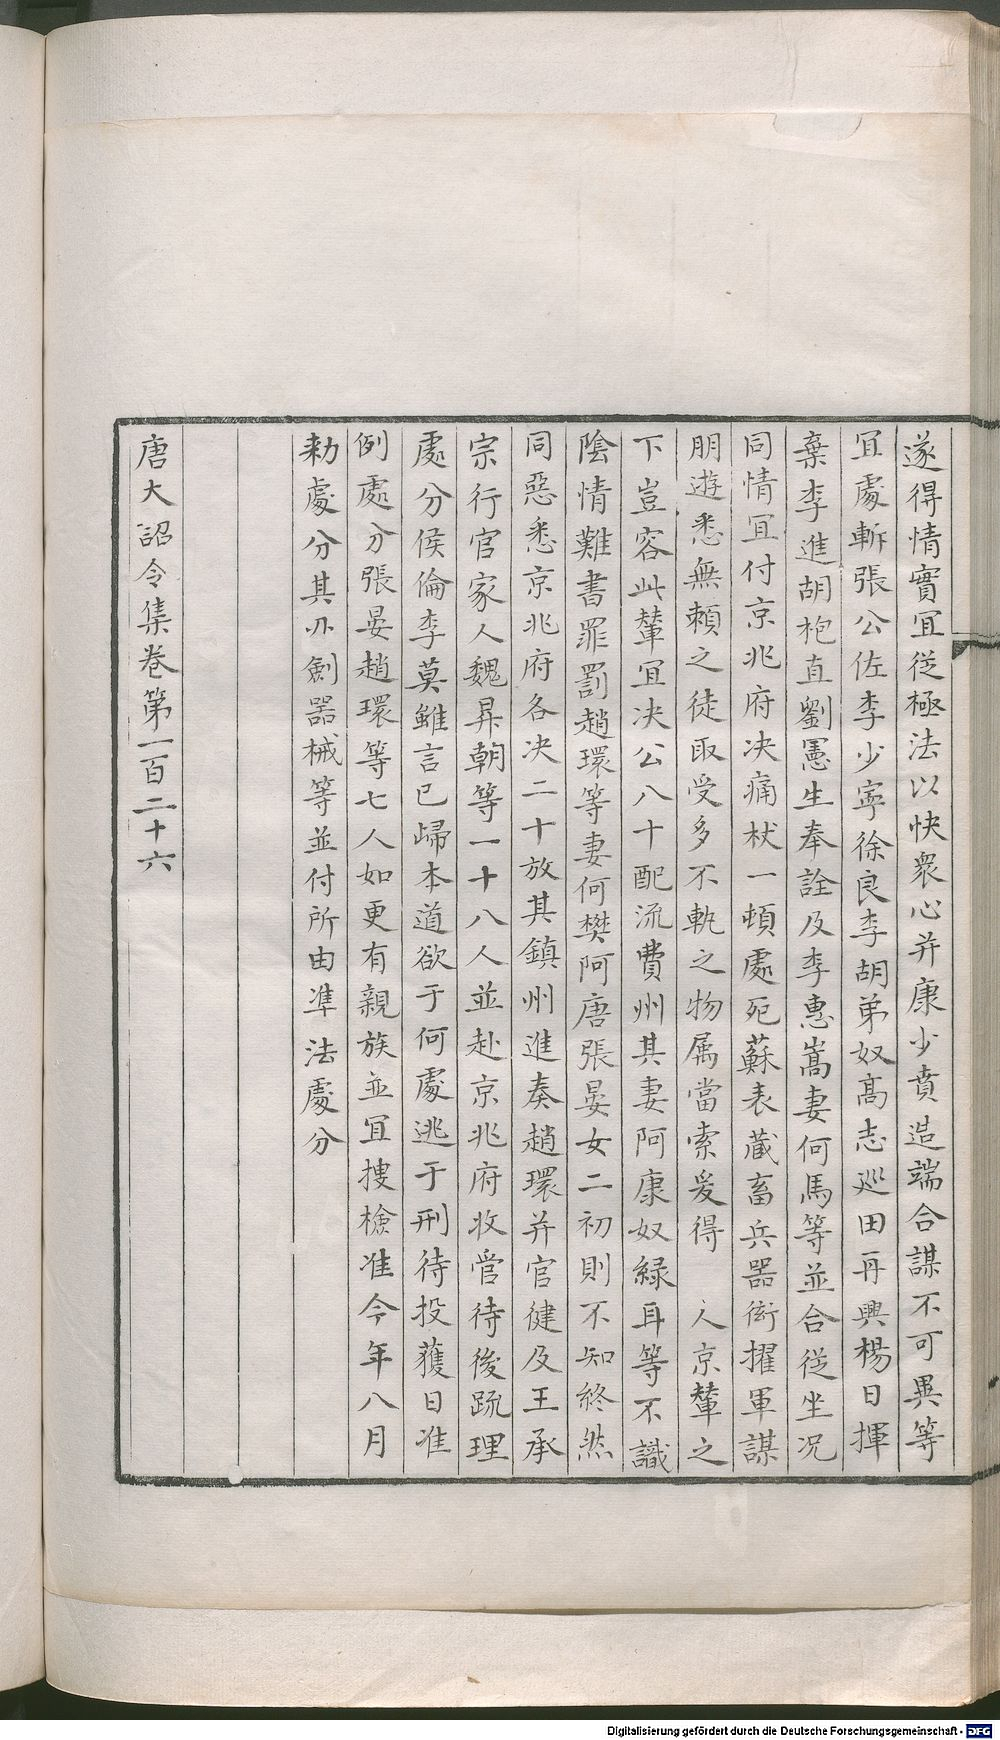 遂得情實冝従極法以快衆心并康少賁造端合謀不可異等
冝處斬張公佐李少寧徐良李胡弟奴髙志巡田再興楊日揮
棄李進胡枹直劉憲生奉詮及李惠嵩妻何馬等並合従坐况
同情冝付京兆府决痛杖一頓處死蘇表藏畜兵器銜擢軍謀
朋遊悉無頼之徒取受多不軌之物属當索爰得　人京輦之
下豈容此輦冝决公八十配流費州其妻阿康奴緑耳等不識
陰情難書罪罰趙環等妻何樊阿唐張晏女二初則不知終然
同惡悉京兆府各决二十放其鎮州進奏趙環并官健及王承
宗行官家人魏昇朝等一十八人並赴京兆府收管待後疏理
處分侯倫李莫雖言已歸本道欲于何處逃于刑待投獲日准
例處分張晏趙環等七人如更有親族並冝捜檢准今年八月
勑處分其爪劍器械等並付所由準法處分
唐大詔令集卷第一百二十六
Digitalisierung gefördert durch die Deutsche Forschungsgemeinschaft - DFG